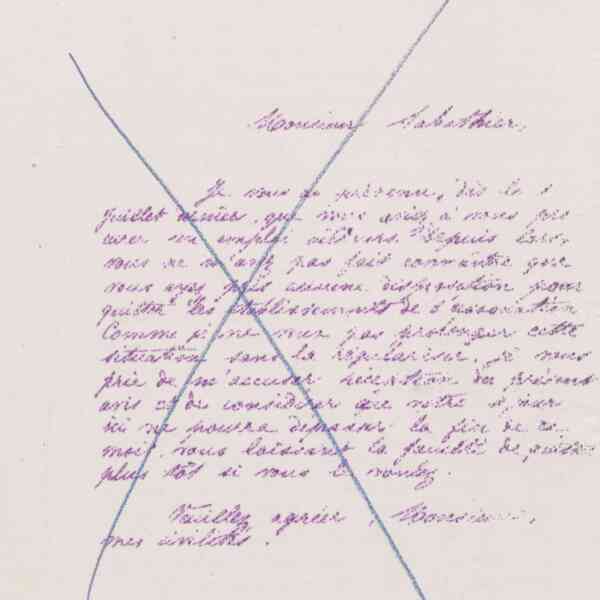 Monsieur Sabathier,
Je vous ai prévenu, dès le
juillet dernier, que vous aviez à vous pro
curer un emploi ailleurs. Depuis lors,
vous ne m'avez pas fait connaître que
vous ayez pris aucune disposition pour
quitter les établissements de l'association
Comme je ne veux pas prolonger cette
situation sans la régulariser, je vous
prie de m'accuser réception du présent
avis et de considérer que votre séjour
ici ne pourra dépasser la fin de ce
mois, vous laissant la faculté de partir
plus tôt si vous le voulez.
Veuillez agréer, Monsieur,
mes civilités.